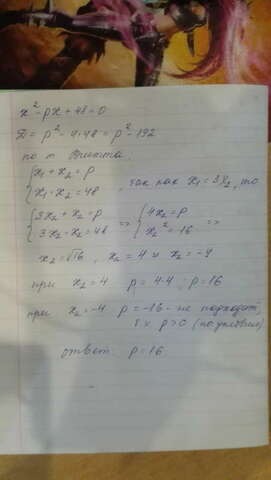 x² - px + 48 = 0
D = p² - 4·48 = p² - 192
по т. Виетта
{x₁ + x₂ = p
{x₁ · x₂ = 48, так как x₁ = 3x₂, то
{3x₂ + x₂ = p => {4x₂ = p =>
{3x₂ · x₂ = 48 {x₂² = 16
x₂ = √16, x₂ = 4 и x₂ = -4
при x₂ = 4 p = 4·4; p = 16
при x₂ = -4 p = -16 - не подходит,
т.к p > 0 (по условию)
ответ: p = 16